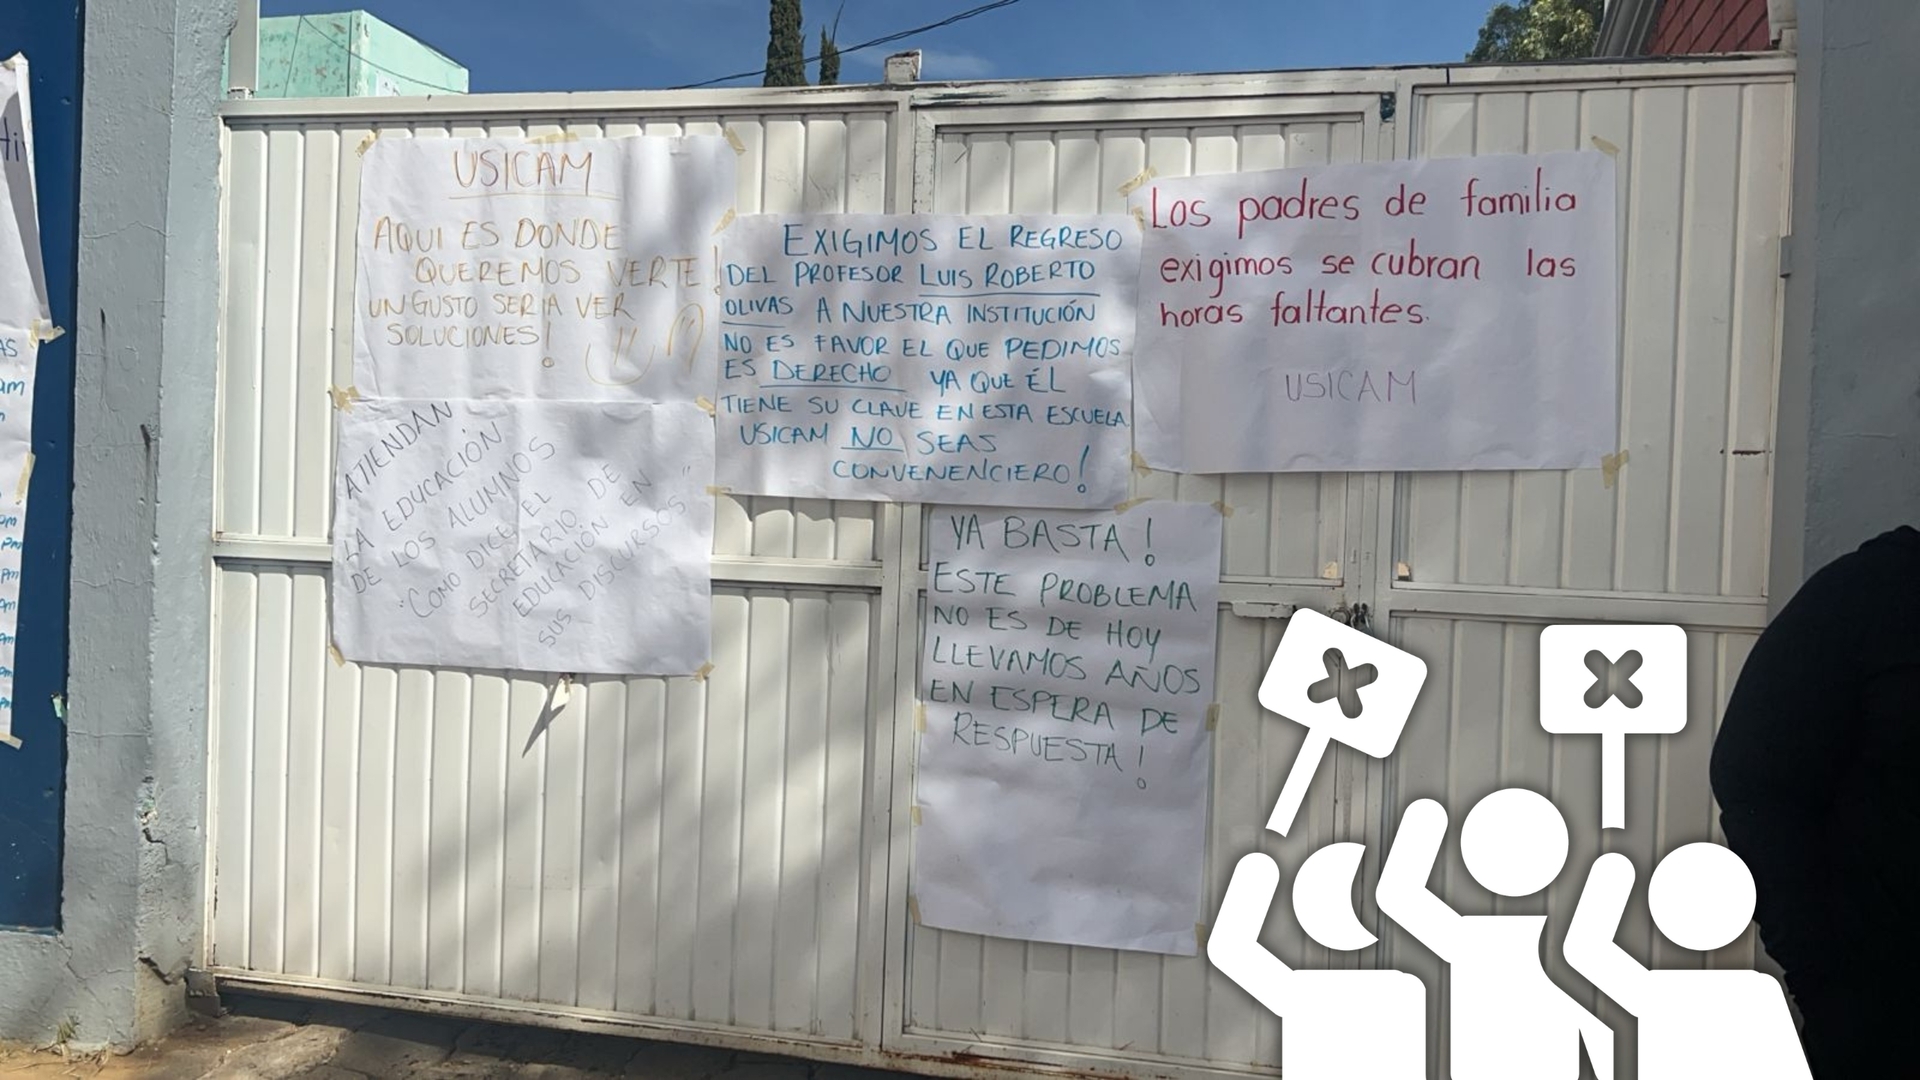 USICAM
AQUI ES DONDE
QUEREMOS VERTE!
UN GUSTO SERIA VER
SOLUCIONES!
ATIENDAN
LA EDUCACIÓN
DE LOS ALUMNOS
"COMO DICE EL
SECRETARIO DE
EDUCACIÓN EN
SUS DISCURSOS"
EXIGIMOS EL REGRESO
DEL PROFESOR LUIS ROBERTO
OLIVAS A NUESTRA INSTITUCIÓN
NO ES FAVOR EL QUE PEDIMOS
ES DERECHO YA QUE ÉL
TIENE SU CLAVE EN ESTA ESCUELA
USICAM NO SEAS
CONVENENCIERO!
YA BASTA!
ESTE PROBLEMA
NO ES DE HOY
LLEVAMOS AÑOS
EN ESPERA DE
RESPUESTA!
Los padres de familia
exigimos se cubran las
horas faltantes.
USICAM